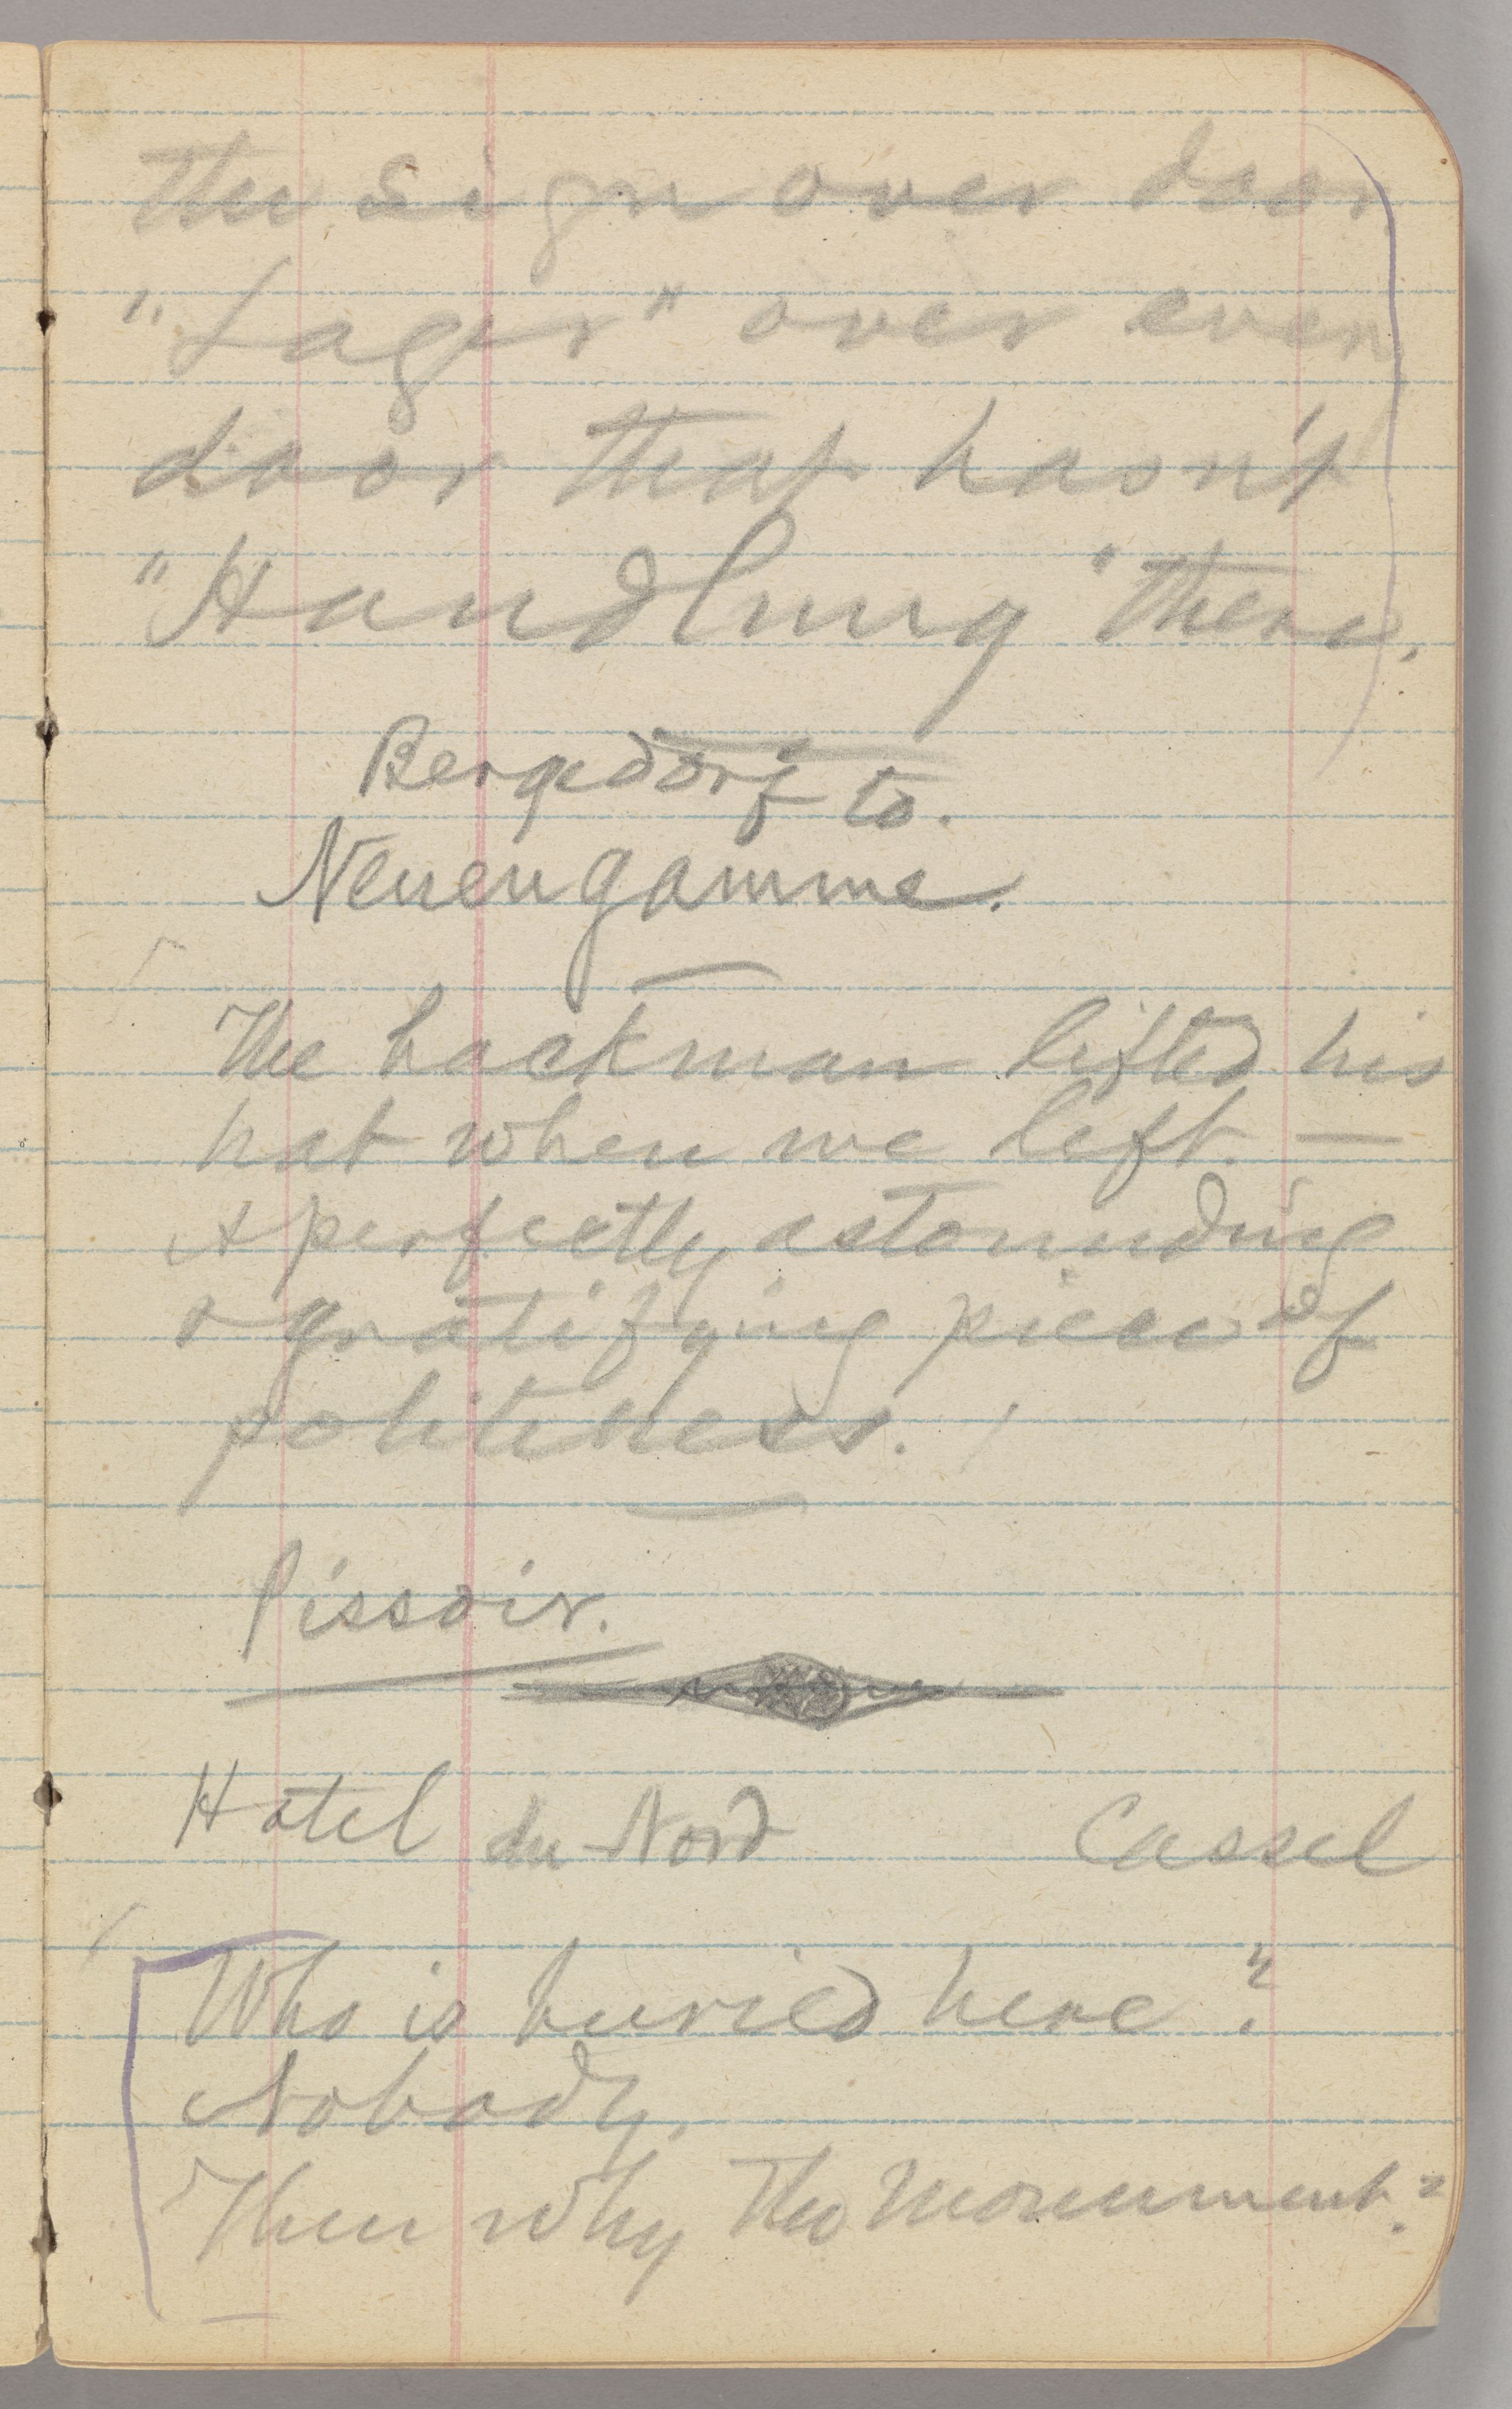 the sign over door.
"Lager" over even
door that hasn't
"Handlung" there.
Bergedorf to.
Neuengamme.
The hackman lifted his
hat when we left. —
A perfectly astounding
& gratifying piece of
politeness.
Pissoir.
Hotel du Nord Cassel
Who is buried here?
Nobody.
Then why the monument?